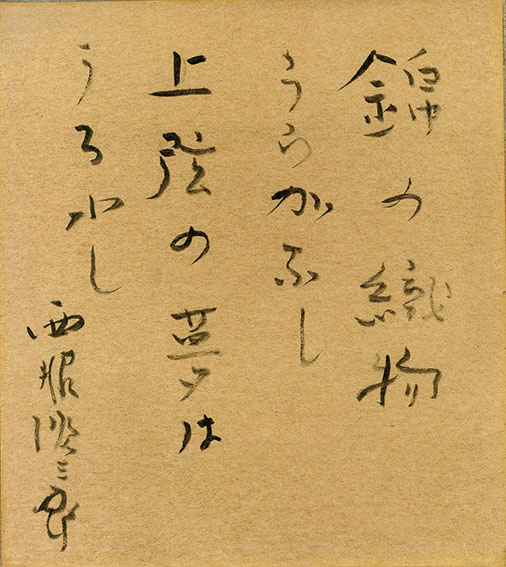 錦の織物
うらかなし
上弦の夢は
うるはし
西脇順三郎